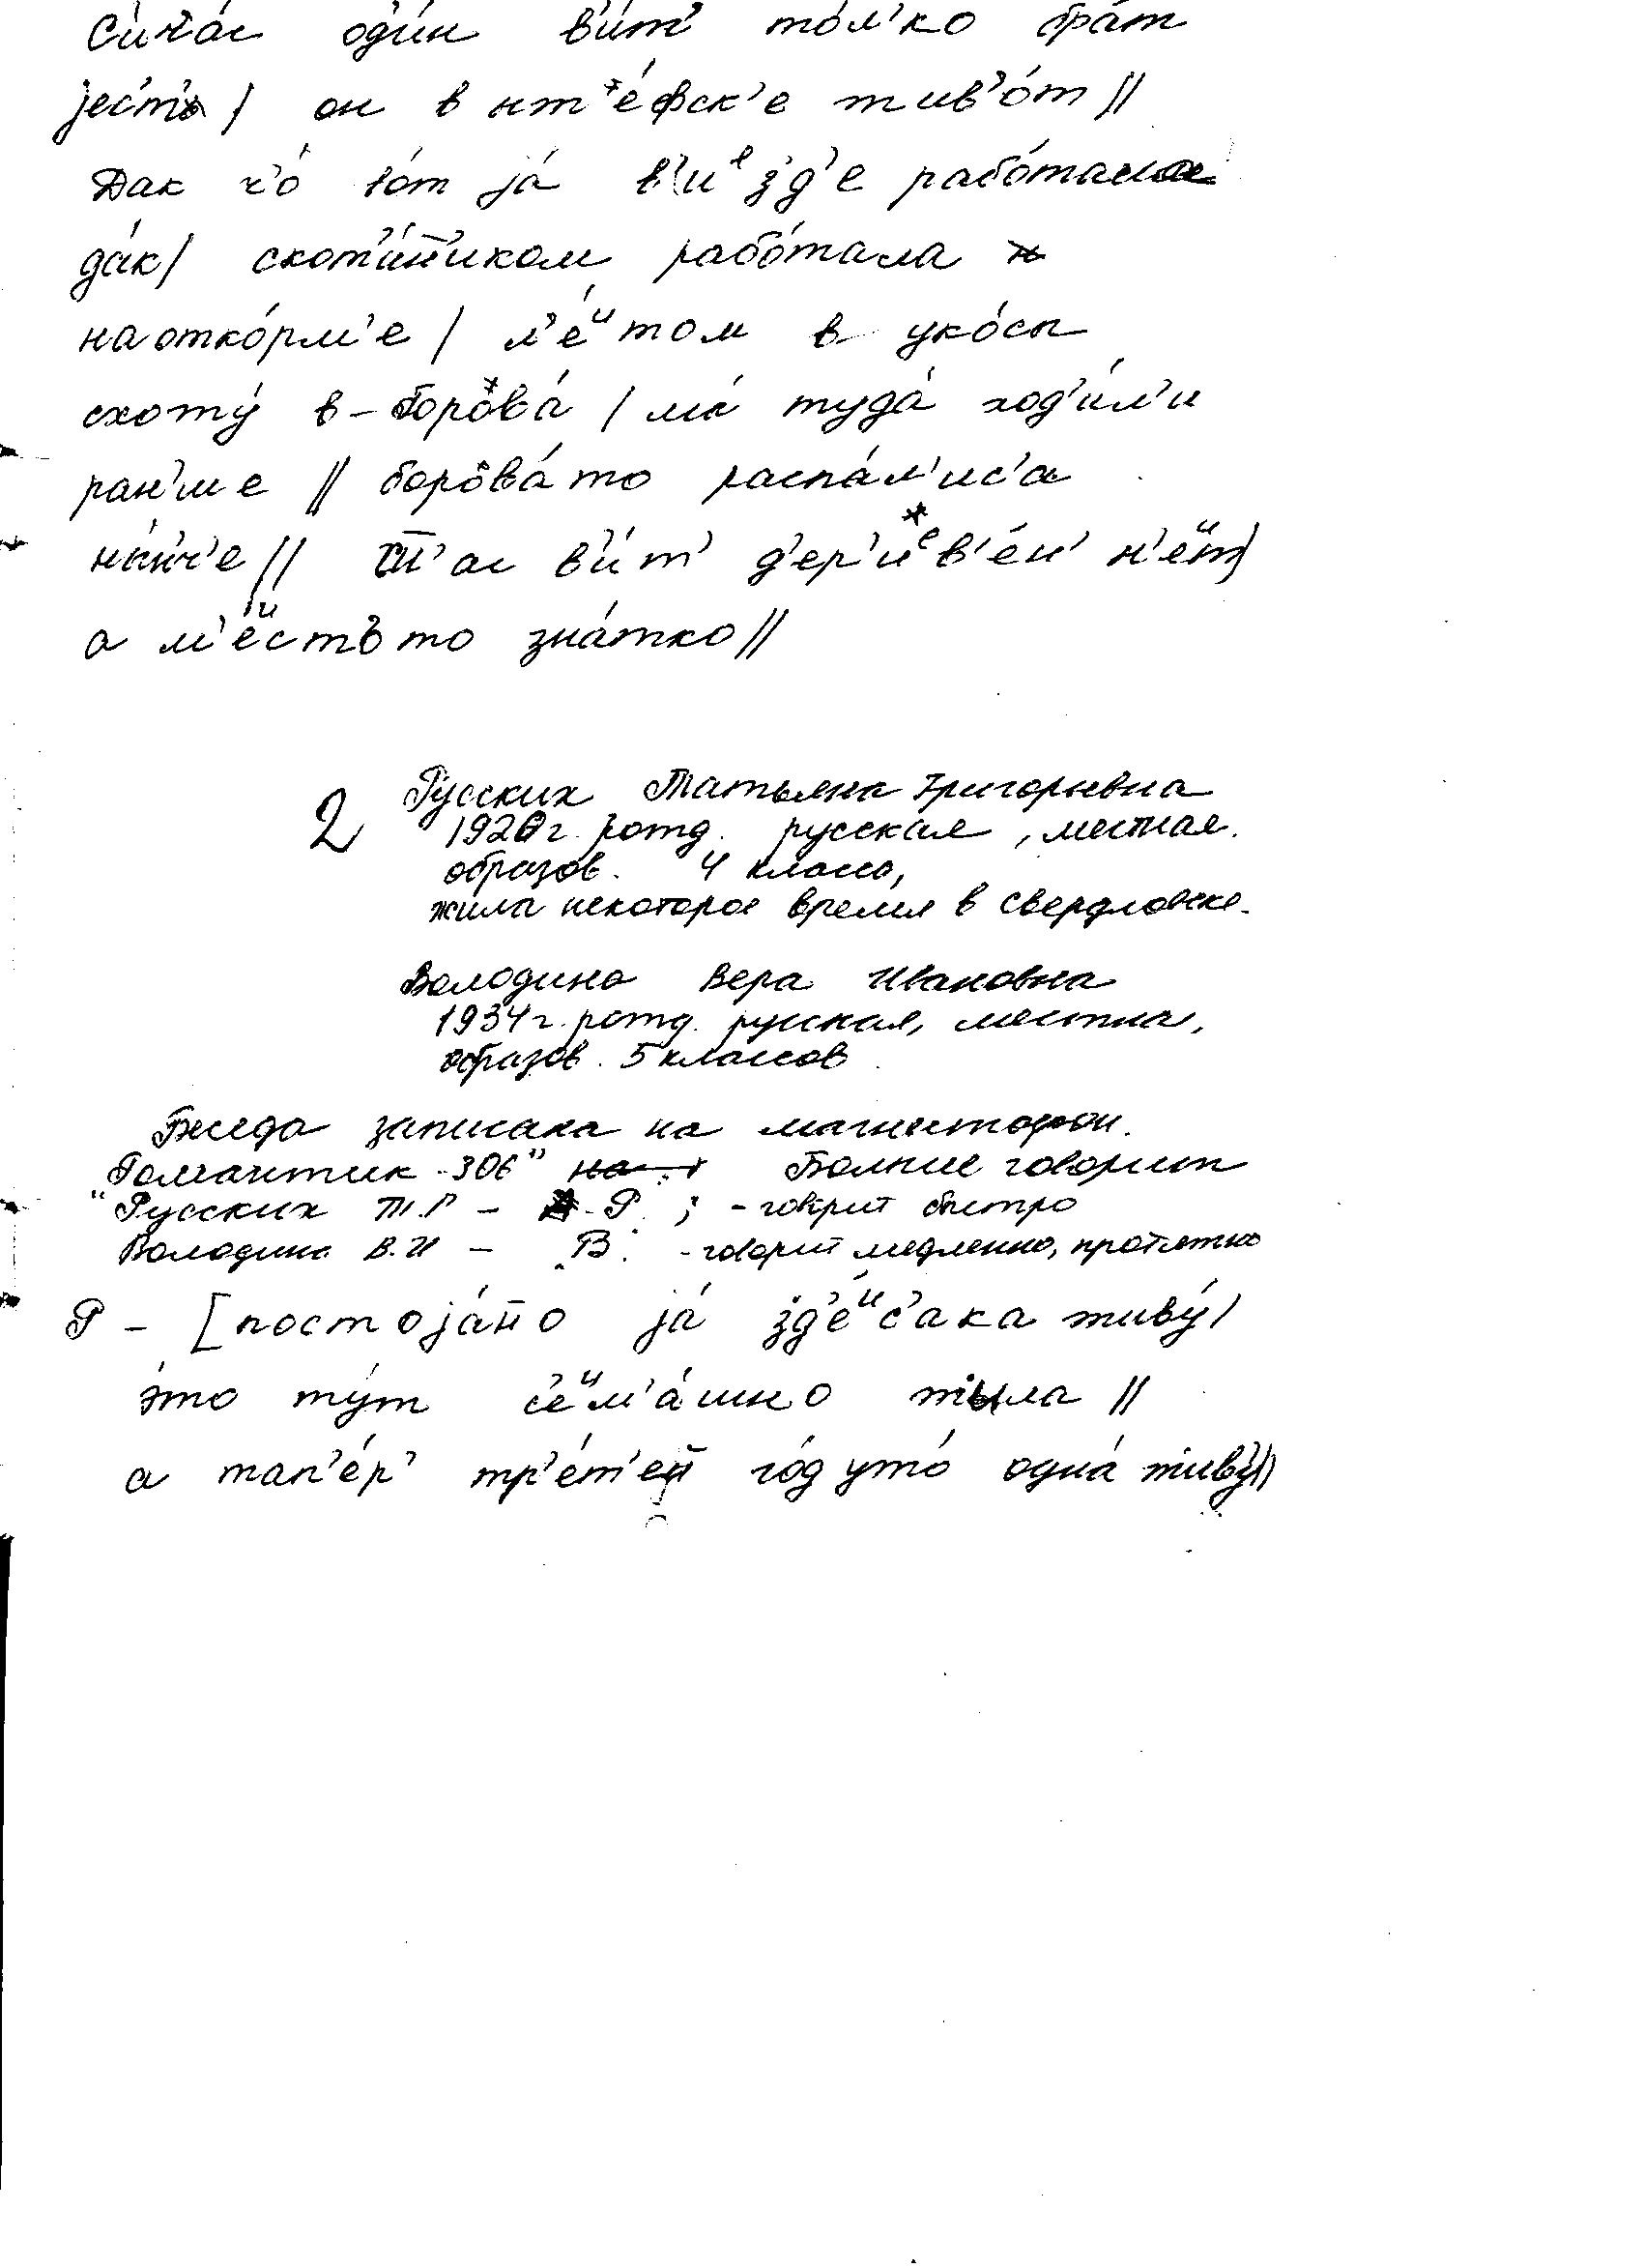 с'ича́с од'и́н в'и́т' то́л'ко бра́т
jе́ст' / он в ит'е́фск'е жив'о́т //
Дак ч'о́ во́т jа́ в'иез'д'е рабо́тала
да́к / скот'и́н'иком рабо́тала
на отко́рм'е / л'е́итом в уко́сы
схожу́ в-борова́ / мы́ туда́ ход'и́л'и
ран'ше // борова́то распа́л'ис'а
ны́н'ч'е // ш'ас в'и́т' д'ер'иев'е́н' н'е́т /
а м'е́истъто зна́тко //
2 Русских Татьяна Григорьевна
1920 г. рожд. русская, местная.
образов. 4 класса,
жила некоторое время в Свердловске.
Володина Вера Ивановна
1934 г. рожд. русская, местная,
образов. 5 классов
Беседа записана на магнитофон.
"Романтик -306" Больше говорит
Русских Т.Г – Р ; - говорит быстро
Володина В.И – В. - говорит медленно, протяжно
Р – [постоjа́н̄о jа́ з'д'е́ис'ака живу́ /
э́то ту́т с'еим'а́шно жыла //
а тап'е́р' тр'е́т'ей го́д ужо́ одна́ живу́ //